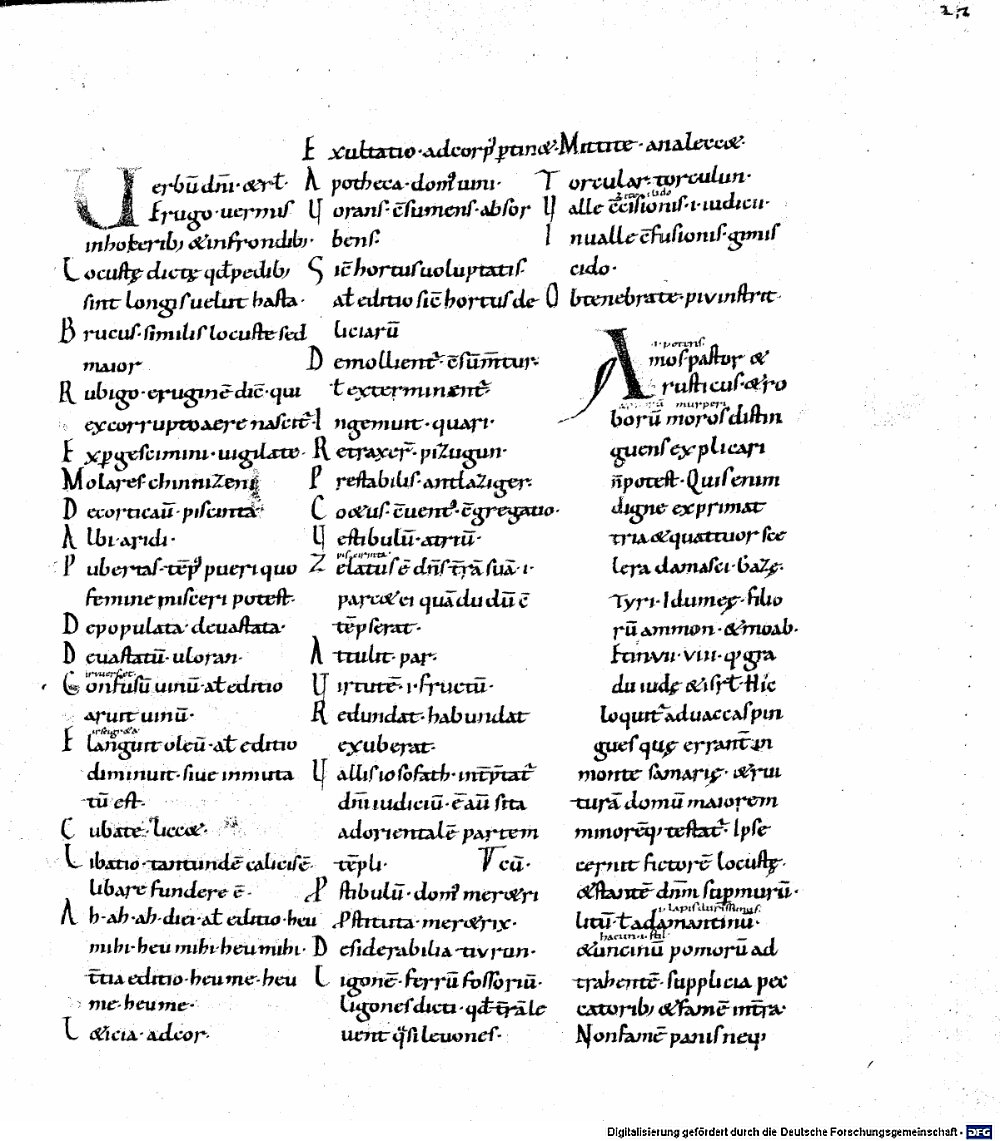 Uerbū dn̄i · & rt̄ ·
Erugo · uermis
inholerib; & infrondib; ·
Locustę dictę qd̄ pedib;
sint longi suelut hasta ·
Brucus · similis locuste sed
maior
Rubigo · eruginē dic̄ · qui
ex corrupto aere nascit̄ ·
Expgescimini · uigilate ·
Molares chinnizeni
Decorticau̅ · piscinta
Albi · aridi ·
Pubertas · tēp̄ pueri quo
femine misceri potest ·
Depopulata · deuastata ·
Deuastatū · uloran ·
Confusū uinū · at̄ editio
aruit uinū ·
Elanguit oleū · at̄ editio
diminuit · siue inmuta
tū est ·
Cubate · licc& ·
Libatio · tantundē calicisē
libare fundere ē ·
Ah · ah · ah · dici · at̄ editio · heu
mihi · heu mihi · heu mihi ·
t̄tia editio · heu me · heu
me · heu me ·
L&icia · adcor ·
Exultatio · adcorp̄ ptin& ·
Apotheca · dom̄ uini ·
Uorans · c̄sumens · absor
bens ·
Sic̄ hortus uoluptatis ·
at̄ editio sic̄ hortus de
liciarū
Demollient̄ · c̄sūmtur ·
t exterminent̄
Ingemuit · quari ·
Retraxer̄ · pizugun ·
Prestabilis · antlaziger ·
Co&us · c̄uent̄ · c̄gregatio ·
Uestibulū · atriū ·
Zelatus ē dn̄s t̄rā suā · i ·
parc& ei quā dudū c̄
tēpserat ·
Attulit · par ·
Uirtutē · i · fructū ·
Redundat · habundat
exuberat ·
Uallis iosofath · int̄p̄tat̄
dn̄i iudiciū · ē aū sita
ad orientalē partem
tēpli · Tcū ·
Pstibulū · dom̄ mer&ri
Pstituta · mer&rix ·
Desiderabilia · tivrun ·
Ligonē · ferrū fossoriū ·
ligones dicti · qd̄ t̄rā le
uent q̄si leuones ·
Mittite · analecc& ·
Torcular · torculun ·
Ualle c̄cisionis · i · iudicii ·
Inualle c̄fusionis · gimis
cido ·
Obtenebrate · pivinstrit ·
Amos pastor &
rusticus & ro
borū moros distin
guens explicari
n̄ potest · Quis enim
digne exprimat
tria & quattuor sce
lera damasci · Gazę ·
Tyri · Idumeę · filio
rū ammon · & moab ·
Et in vii · viii · q; gra
du iudę & isrt̄ · Hic
loquit̄ ad uaccas pin
gues quę errant̄ in
monte samarię · & rui
turā domū maiorem
minorēq; testat̄ · Ipse
cernit fictorē locustę ·
& stantē dn̄m sup murū ·
litū t̄ adamantinū ·
& uncinū pomorū ad
trahentē · supplicia pec
catorib; & famē int̄ra ·
Non famē panis neq;
Digitalisierung gefördert durch die Deutsche Forschungsgemeinschaft · DFG